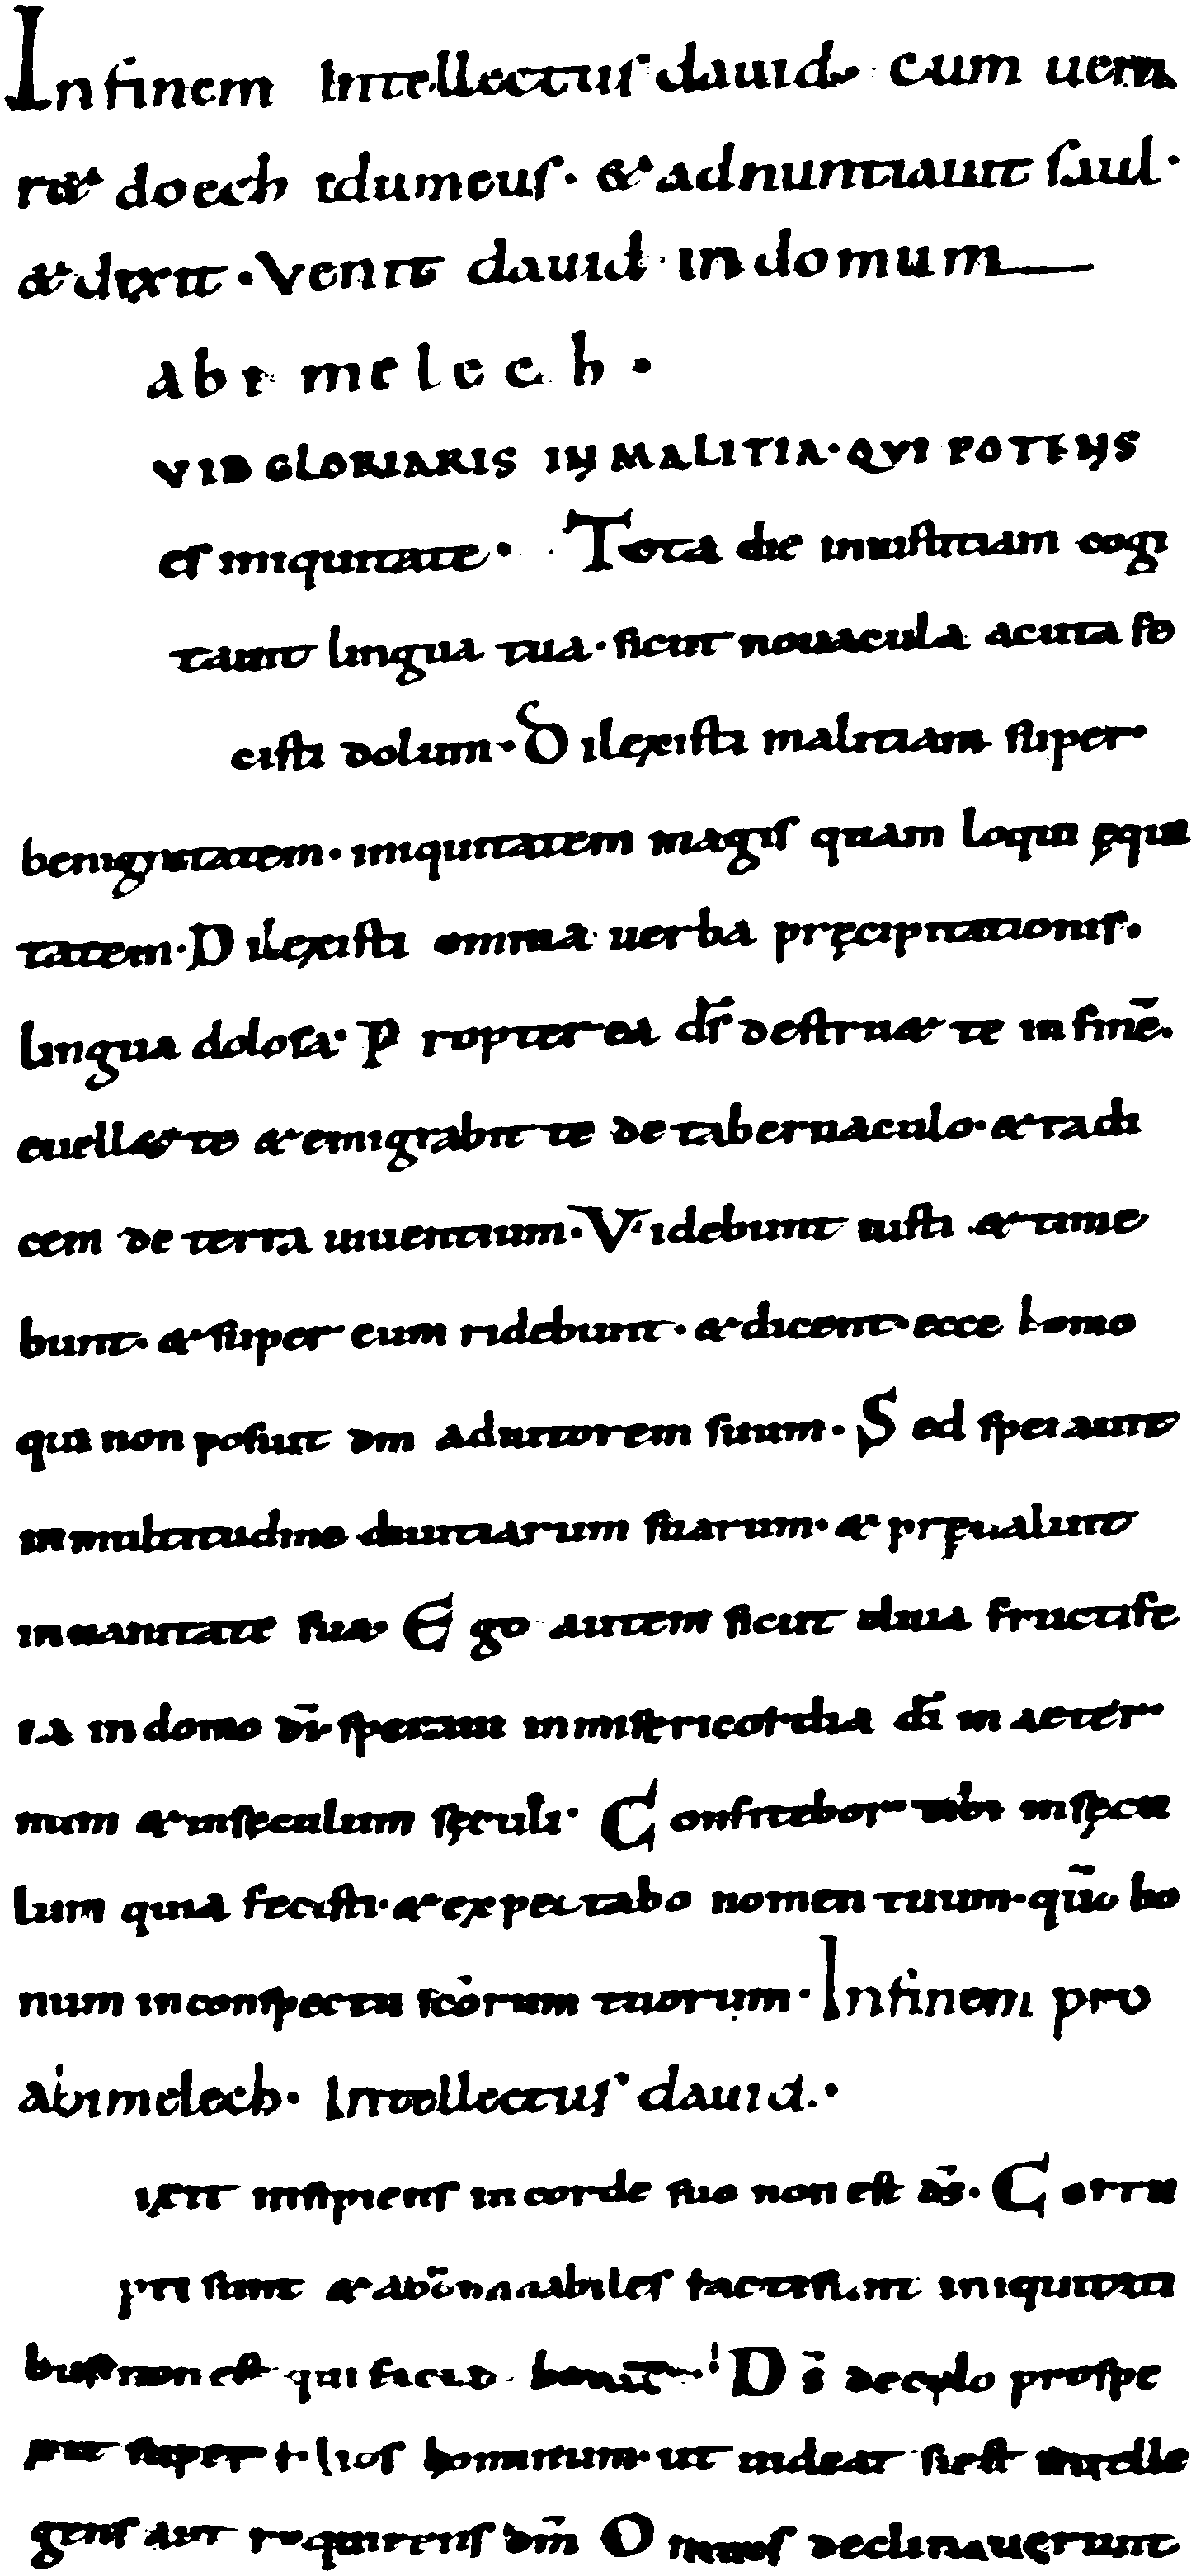 In finem Intellectus dauid cum ueni
r& doech idumeus · & adnuntiauit saul ·
& dixit · Venit dauid in domum
abimelech ·
VID GLORIARIS IN MALITIA · QVI POTENS
es iniquitate · Tota die iniustitiam cogi
tauit lingua tua · sicut nouacula acuta fe
cisti dolum · Dilexisti malitiam super
benignitatem · iniquitatem magis quam loqui ęqui
tatem · Dilexisti omnia uerba pręcipitationis ·
lingua dolosa · Propterea ds̄ destru& te in finē ·
euell& te & emigrabit te de tabernaculo · & radi
cem de terra uiuentium · Videbunt iusti & time
bunt · & super eum ridebunt · & dicent ecce homo
qui non posuit dm adiutorem suum · Sed sperauit
in multitudine diuitiarum suarum · & pręualuit
in uanitate sua · Ego autem sicut oliua fructife
ra in domo dī speraui in misericordia dī in aeter
num & in sęculum sęculi · Confitebor tibi in sęcu
lum quia fecisti · & expectabo nomen tuum · qūo bo
num in conspectu sc̄orum tuorum · In finem pro
abimelech · Intellectus dauid ·
ixit insipiens in corde suo non est ds̄ · Corru
pti sunt & abōminabiles facti sunt in iniquitati
bus non est qui faciad bonū · Ds̄ de cęlo prospe
xit super filios hominum · ut uideat si est intelle
gens aut requirens dm̄ Omnes declinauerunt